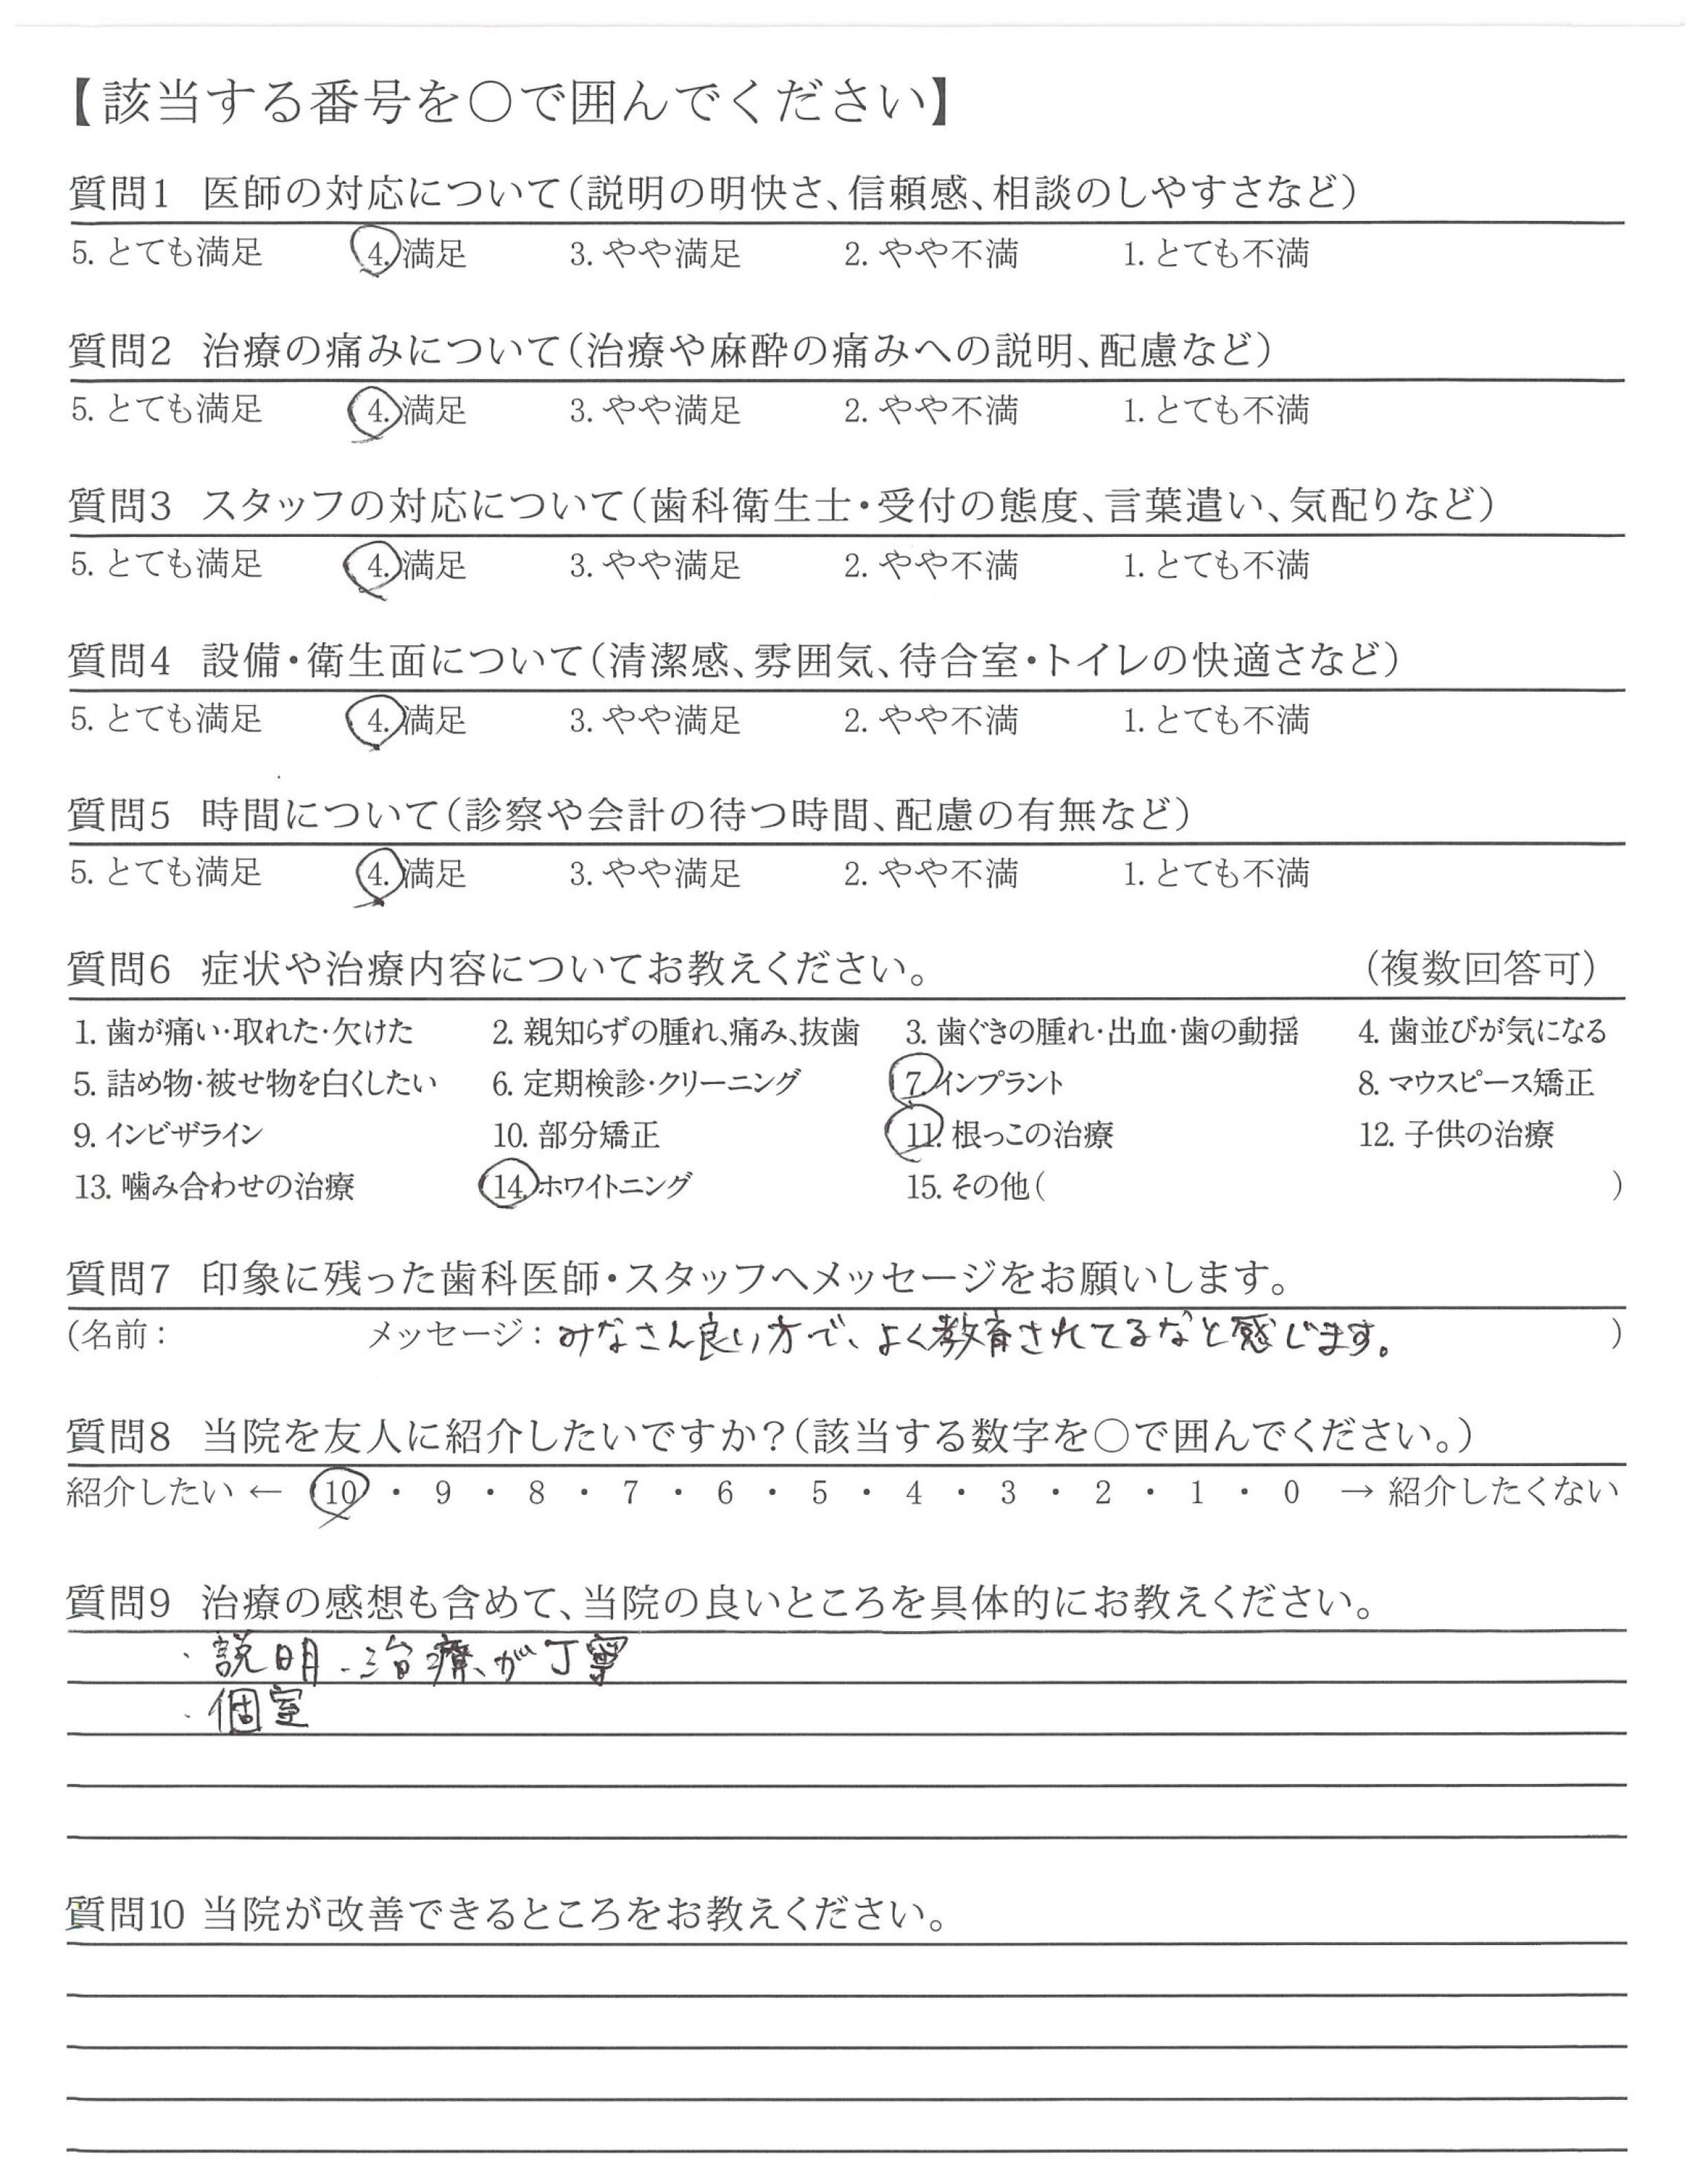 【該当する番号を○で囲んでください】
質問1 医師の対応について(説明の明快さ、信頼感、相談のしやすさなど)
5. とても満足 4. 満足 3. やや満足 2. やや不満 1. とても不満
質問2 治療の痛みについて(治療や麻酔の痛みへの説明、配慮など)
5. とても満足 4. 満足 3. やや満足 2. やや不満 1. とても不満
質問3 スタッフの対応について(歯科衛生士・受付の態度、言葉遣い、気配りなど)
5. とても満足 4. 満足 3. やや満足 2. やや不満 1. とても不満
質問4 設備・衛生面について(清潔感、雰囲気、待合室・トイレの快適さなど)
5. とても満足 4. 満足 3. やや満足 2. やや不満 1. とても不満
質問5 時間について(診察や会計の待つ時間、配慮の有無など)
5. とても満足 4. 満足 3. やや満足 2. やや不満 1. とても不満
質問6 症状や治療内容についてお教えください。 (複数回答可)
1. 歯が痛い・取れた・欠けた 2. 親知らずの腫れ、痛み、抜歯 3. 歯ぐきの腫れ・出血・歯の動揺 4. 歯並びが気になる
5. 詰め物・被せ物を白くしたい 6. 定期検診・クリーニング 7. インプラント 8. マウスピース矯正
9. インビザライン 10. 部分矯正 11. 根っこの治療 12. 子供の治療
13. 噛み合わせの治療 14. ホワイトニング 15. その他( )
質問7 印象に残った歯科医師・スタッフへメッセージをお願いします。
(名前: メッセージ: みなさん良い方で、よく教育されてるなと感じます。 )
質問8 当院を友人に紹介したいですか?(該当する数字を○で囲んでください。)
紹介したい ← 10 ・ 9 ・ 8 ・ 7 ・ 6 ・ 5 ・ 4 ・ 3 ・ 2 ・ 1 ・ 0 → 紹介したくない
質問9 治療の感想も含めて、当院の良いところを具体的にお教えください。
・説明、治療が丁寧
・個室
質問10 当院が改善できるところをお教えください。